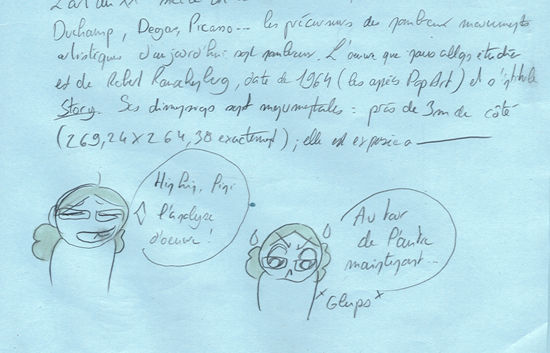 L'art du XXe siècle
Duchamp, Degas, Picasso... les précurseurs des nombreux mouvements
artistiques d'aujourd'hui sont nombreux. L'œuvre que nous allons étudier
est de Robert Rauschenberg, date de 1964 (les après Pop Art) et s'intitule
Story. Ses dimensions sont monumentales : près de 3m de côté
(269,24 x 264,38 exactement) ; elle est exposée à
Fini
l'analyse
d'œuvre !
Au tour
de l'autre
maintenant...
*Glups*